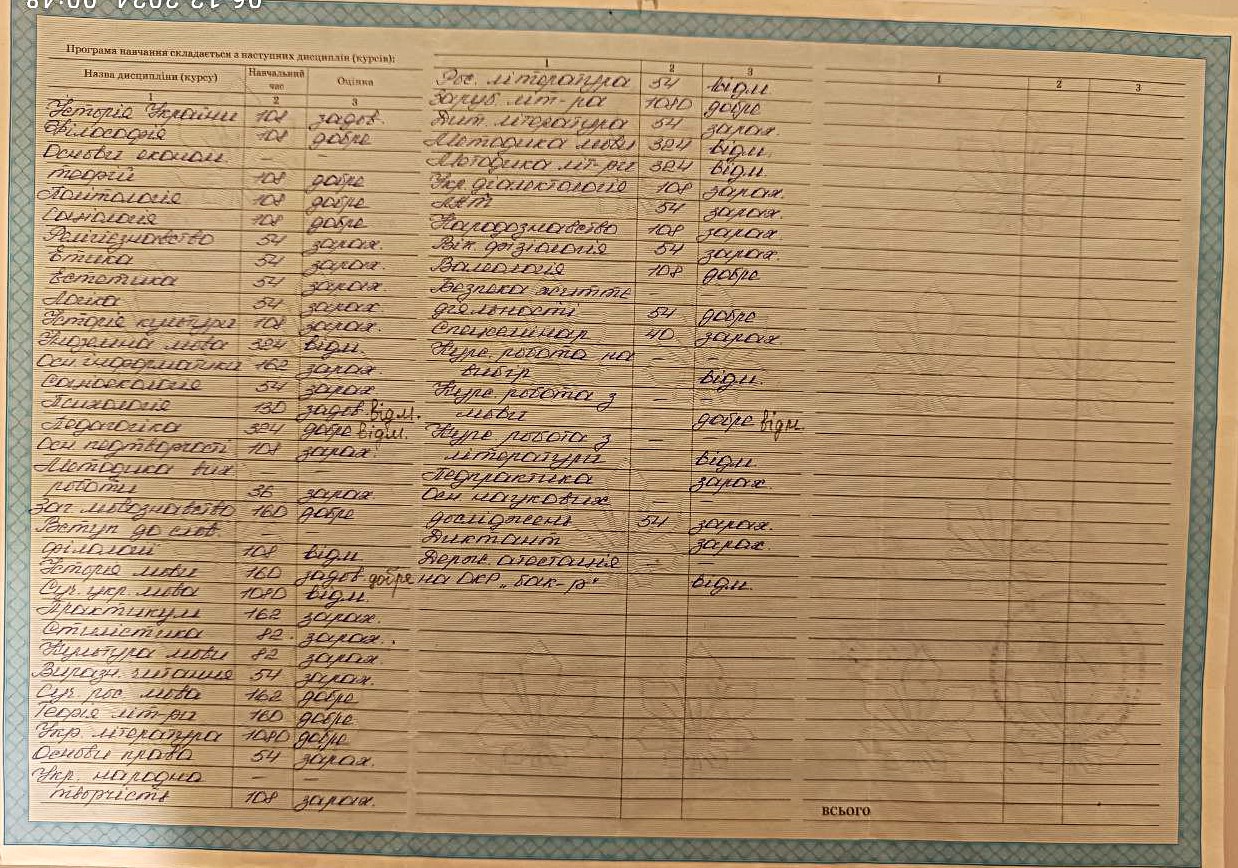 06.12.2024 00:48
Програма навчання складається з наступних дисциплін (курсів):
Назва дисципліни (курсу) Навчальний час Оцінка
1 2 3
Історія України 108 задов.
Філософія 108 добре
Основи економ. — —
теорій 108 добре
Політологія 108 добре
Соціологія 108 добре
Релігієзнавство 54 зарах.
Етика 54 зарах.
Естетика 54 зарах.
Логіка 54 зарах.
Історія культури 108 зарах.
Іноземна мова 324 відм.
Осн. інформатики 162 зарах.
Соціоекологія 54 зарах.
Психологія 130 задов. відм.
Педагогіка 324 добре відм.
Осн. педтворчості 108 зарах.
Методика вих. — —
роботи 36 зарах
Заг. мовознавство 160 добре
Вступ до слов. — —
філології 108 відм
Історія мови 160 задов. добре
Суч. укр. мова 1080 відм.
Практикум 162 зарах.
Стилістика 82 зарах.
Культура мови 82 зарах.
Виразн. читання 54 зарах.
Суч. рос. мова 162 добре
Теорія літ-ри 160 добре
Укр. література 1080 добре
Основи права 54 зарах.
Укр. народна — —
творчість 108 зарах.
1 2 3
Рос. література 54 відм.
Заруб. літ-ра 1080 добре
Дит. література 54 зарах.
Методика мови 324 відм.
Методика літ-ри 324 відм
Укр. діалектологія 108 зарах.
54 зарах.
Народознавство 108 зарах.
Вік. фізіологія 54 зарах.
Валеологія 108 добре
Безпека життє — —
діяльності 54 добре
Спецсемінар 40 зарах
Курс. робота на — —
вибір відм.
Курс. робота з — —
мови добре відм
Курс. робота з — —
літератури відм
Педпрактика зарах.
Осн. наукових —
досліджень 54 зарах.
Диктант зарах.
Держ. атестація — —
на ОКР „бак-р" відм.
1 2 3
ВСЬОГО